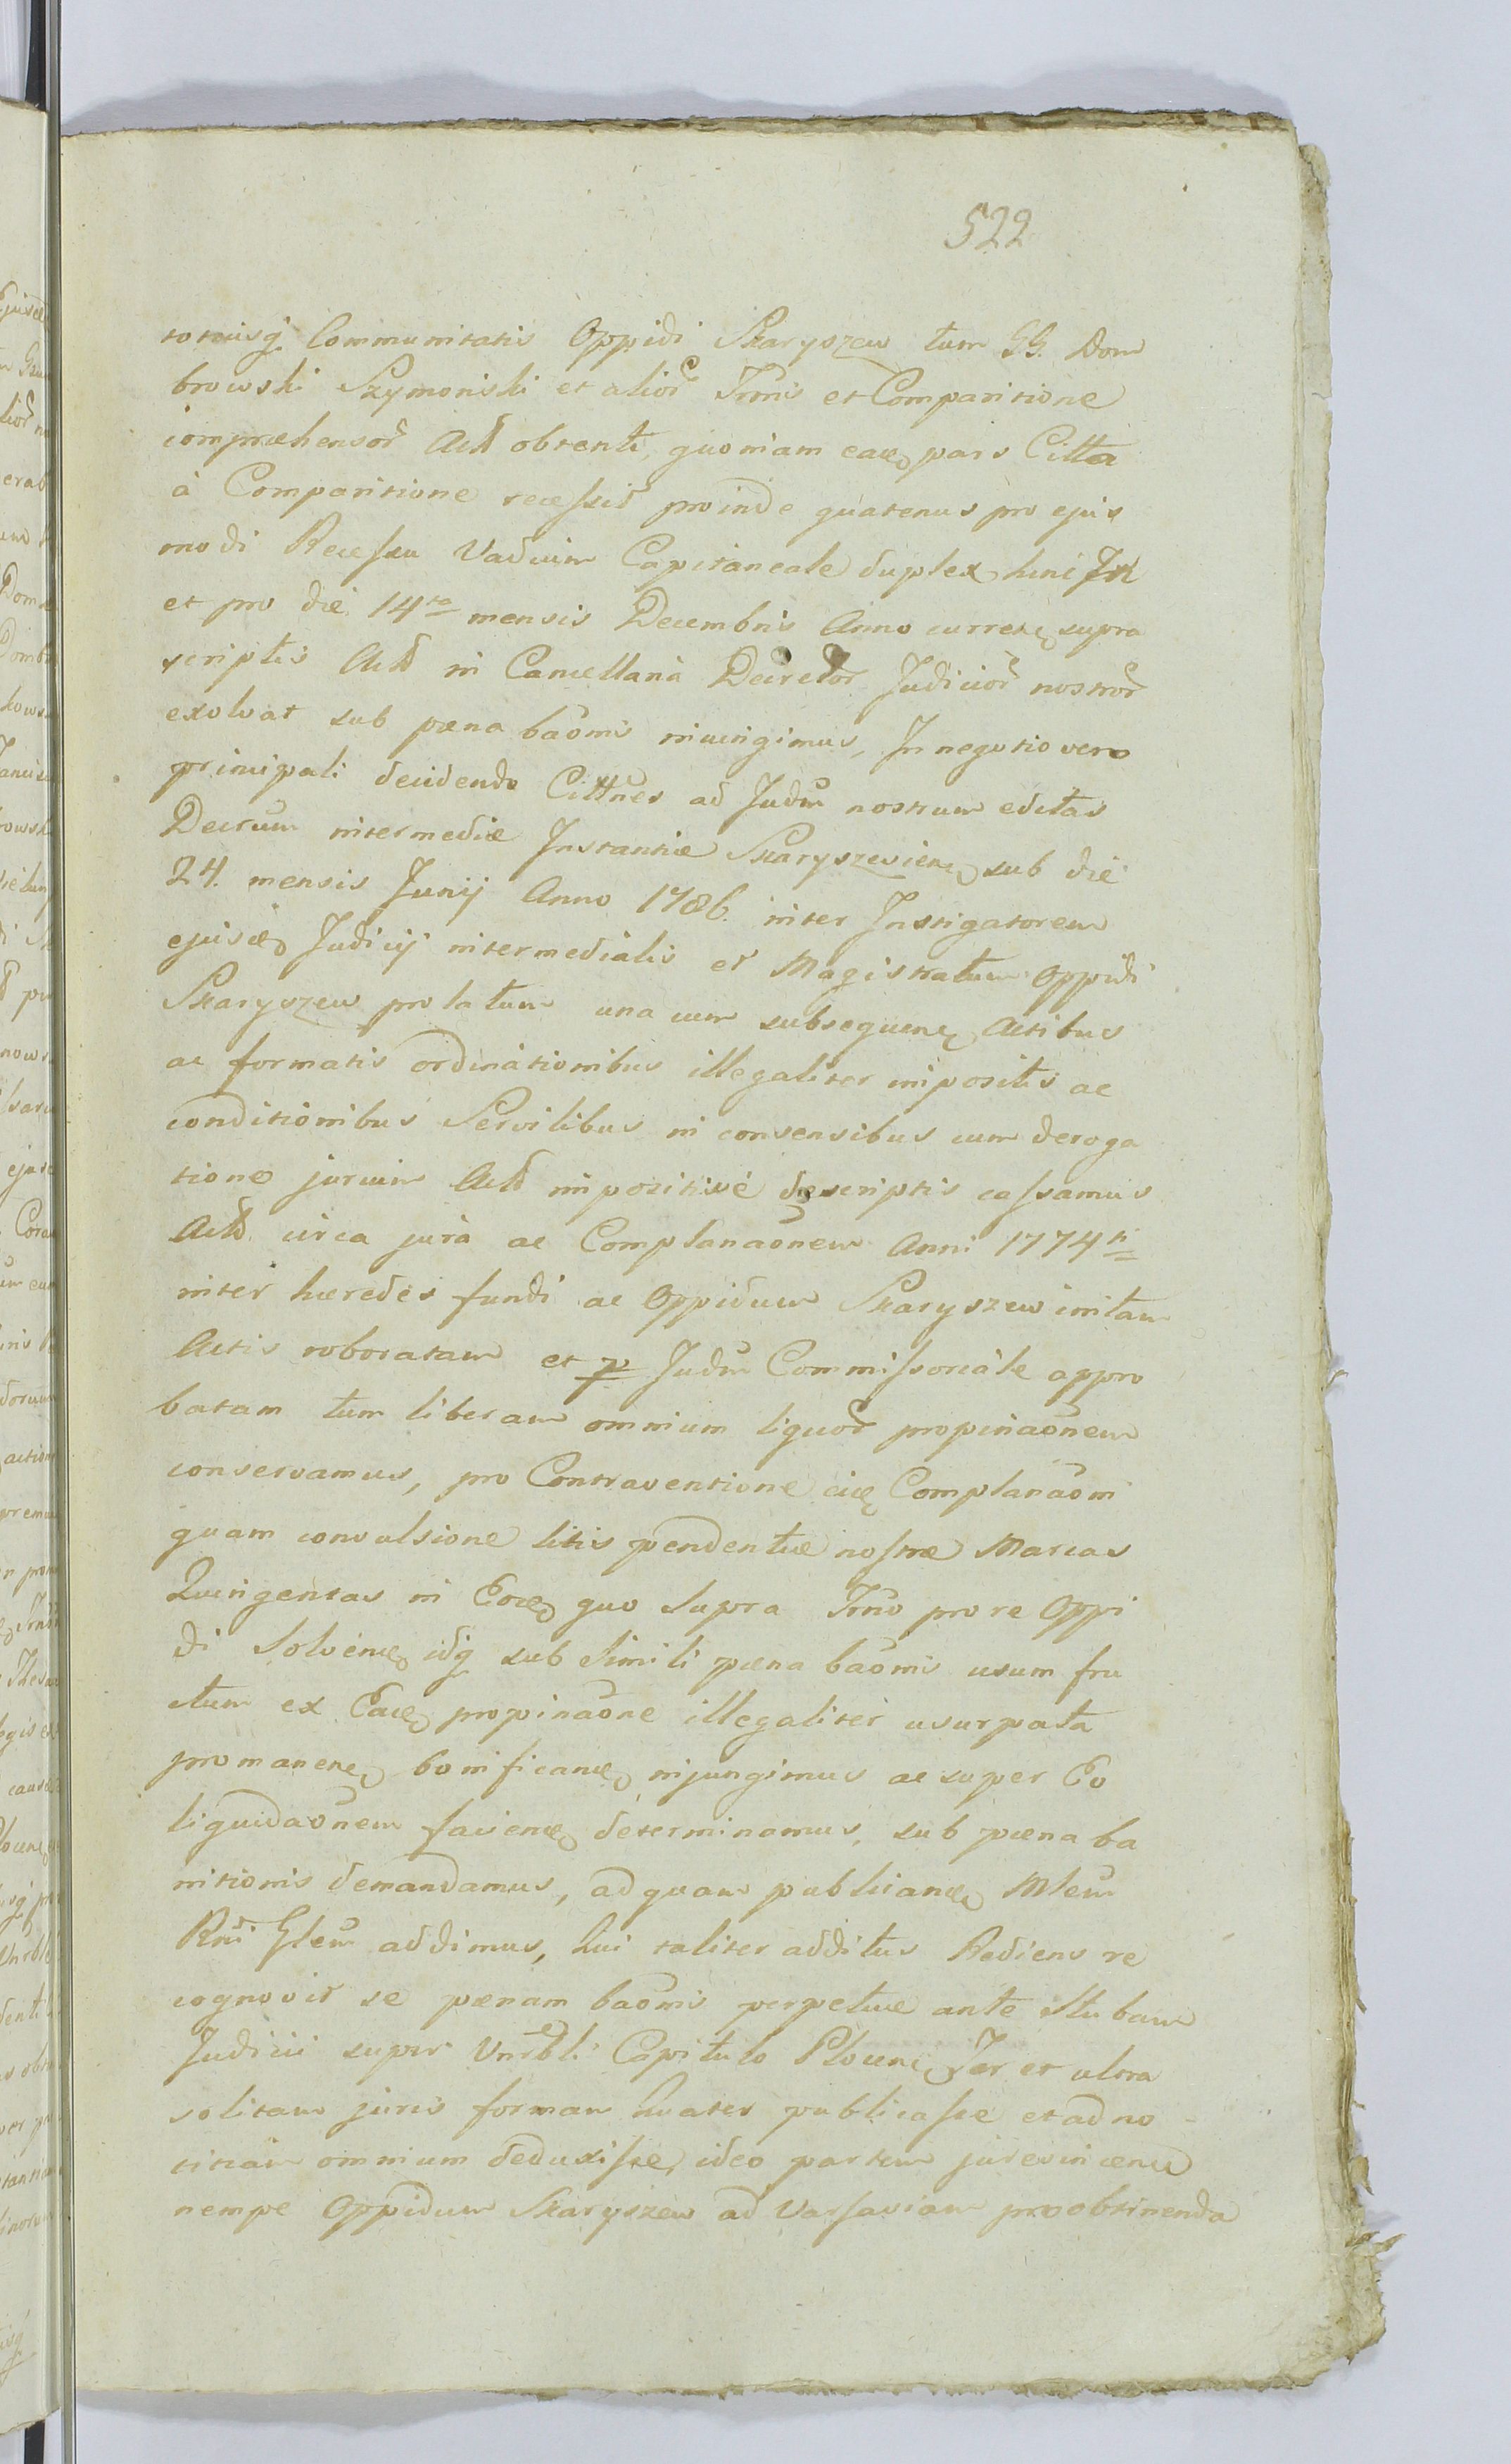 522
totiusq̃ Communitatis Oppidi Skaryszew tum GG. Dom
browski Szymoniski et alior̃ Tm̃is et Comparitione
compræhensor̃ Actũ obtenti, quoniam eadẽ pars Citta
à Comparitione recessit proinde quatenus pro ejus
modi Recessu Vadium Capitaneale duplex hinc In
et pro die 14ta mensis Decembris Anno currenẽ supra
scriptis Actũ in Cancellaria Decretor̃ Judicior̃ nostror̃
exolvat sub pæna bañois iniungimus, In negotio vero
principali decidendo Cittñes ad Judm̃ nostrum editas
Decrum intermediæ Instantiæ Skaryszevienẽ sub die
24. mensis Junij Anno 1786. inter Instigatorem
ejusdẽ Judicij intermedialis et Magistratum Oppidi
Skaryszew prolatum una cum subsequenẽ Actibus
ac formatis ordinationibus illegaliter impositis ac
conditionibus Servilibus in consensibus cum deroga
tione jurium Actũ impozitivè descriptis cassamus
Actũ circa jura ac Complanañoem Anni 1774ti
inter hæredes fundi ac Oppidum Skaryszew initam
Actis roboratam et p Judm̃ Commissoriale appro
batam tum liberam omnium liquor̃ propinañoem
conservamus, pro Contraventione eidẽ Complanañoi
quam convulsione litis pendentiæ nostræ Marcas
Quingentas in Eodẽ quo supra Tm̃o pro re Oppi
di Solvendẽ idq̃ sub simili pæna bañois usum fru
ctum ex Eadẽ propinañoe illegaliter usurpata
promanenẽ bonificandẽ injungimus ac super Eo
liquidañoem faciendẽ determinamus, sub pæna ba
nitionis demandamus, ad quam publicandẽ Mlem̃
Rm̃i Glem̃ addimus, Qui taliter additus Rediens re
cognovit se pænam bañois perpetuæ ante Stubam
Judicii super Vnrbli Capitulo Plocenẽ Ter et ultra
solitam juris formam huater publicasse et ad no
titiam omnium deduxisse, ideo partem jurevincenẽ
nempe Oppidum Skaryszew ad Varsaviam pro obtinenda